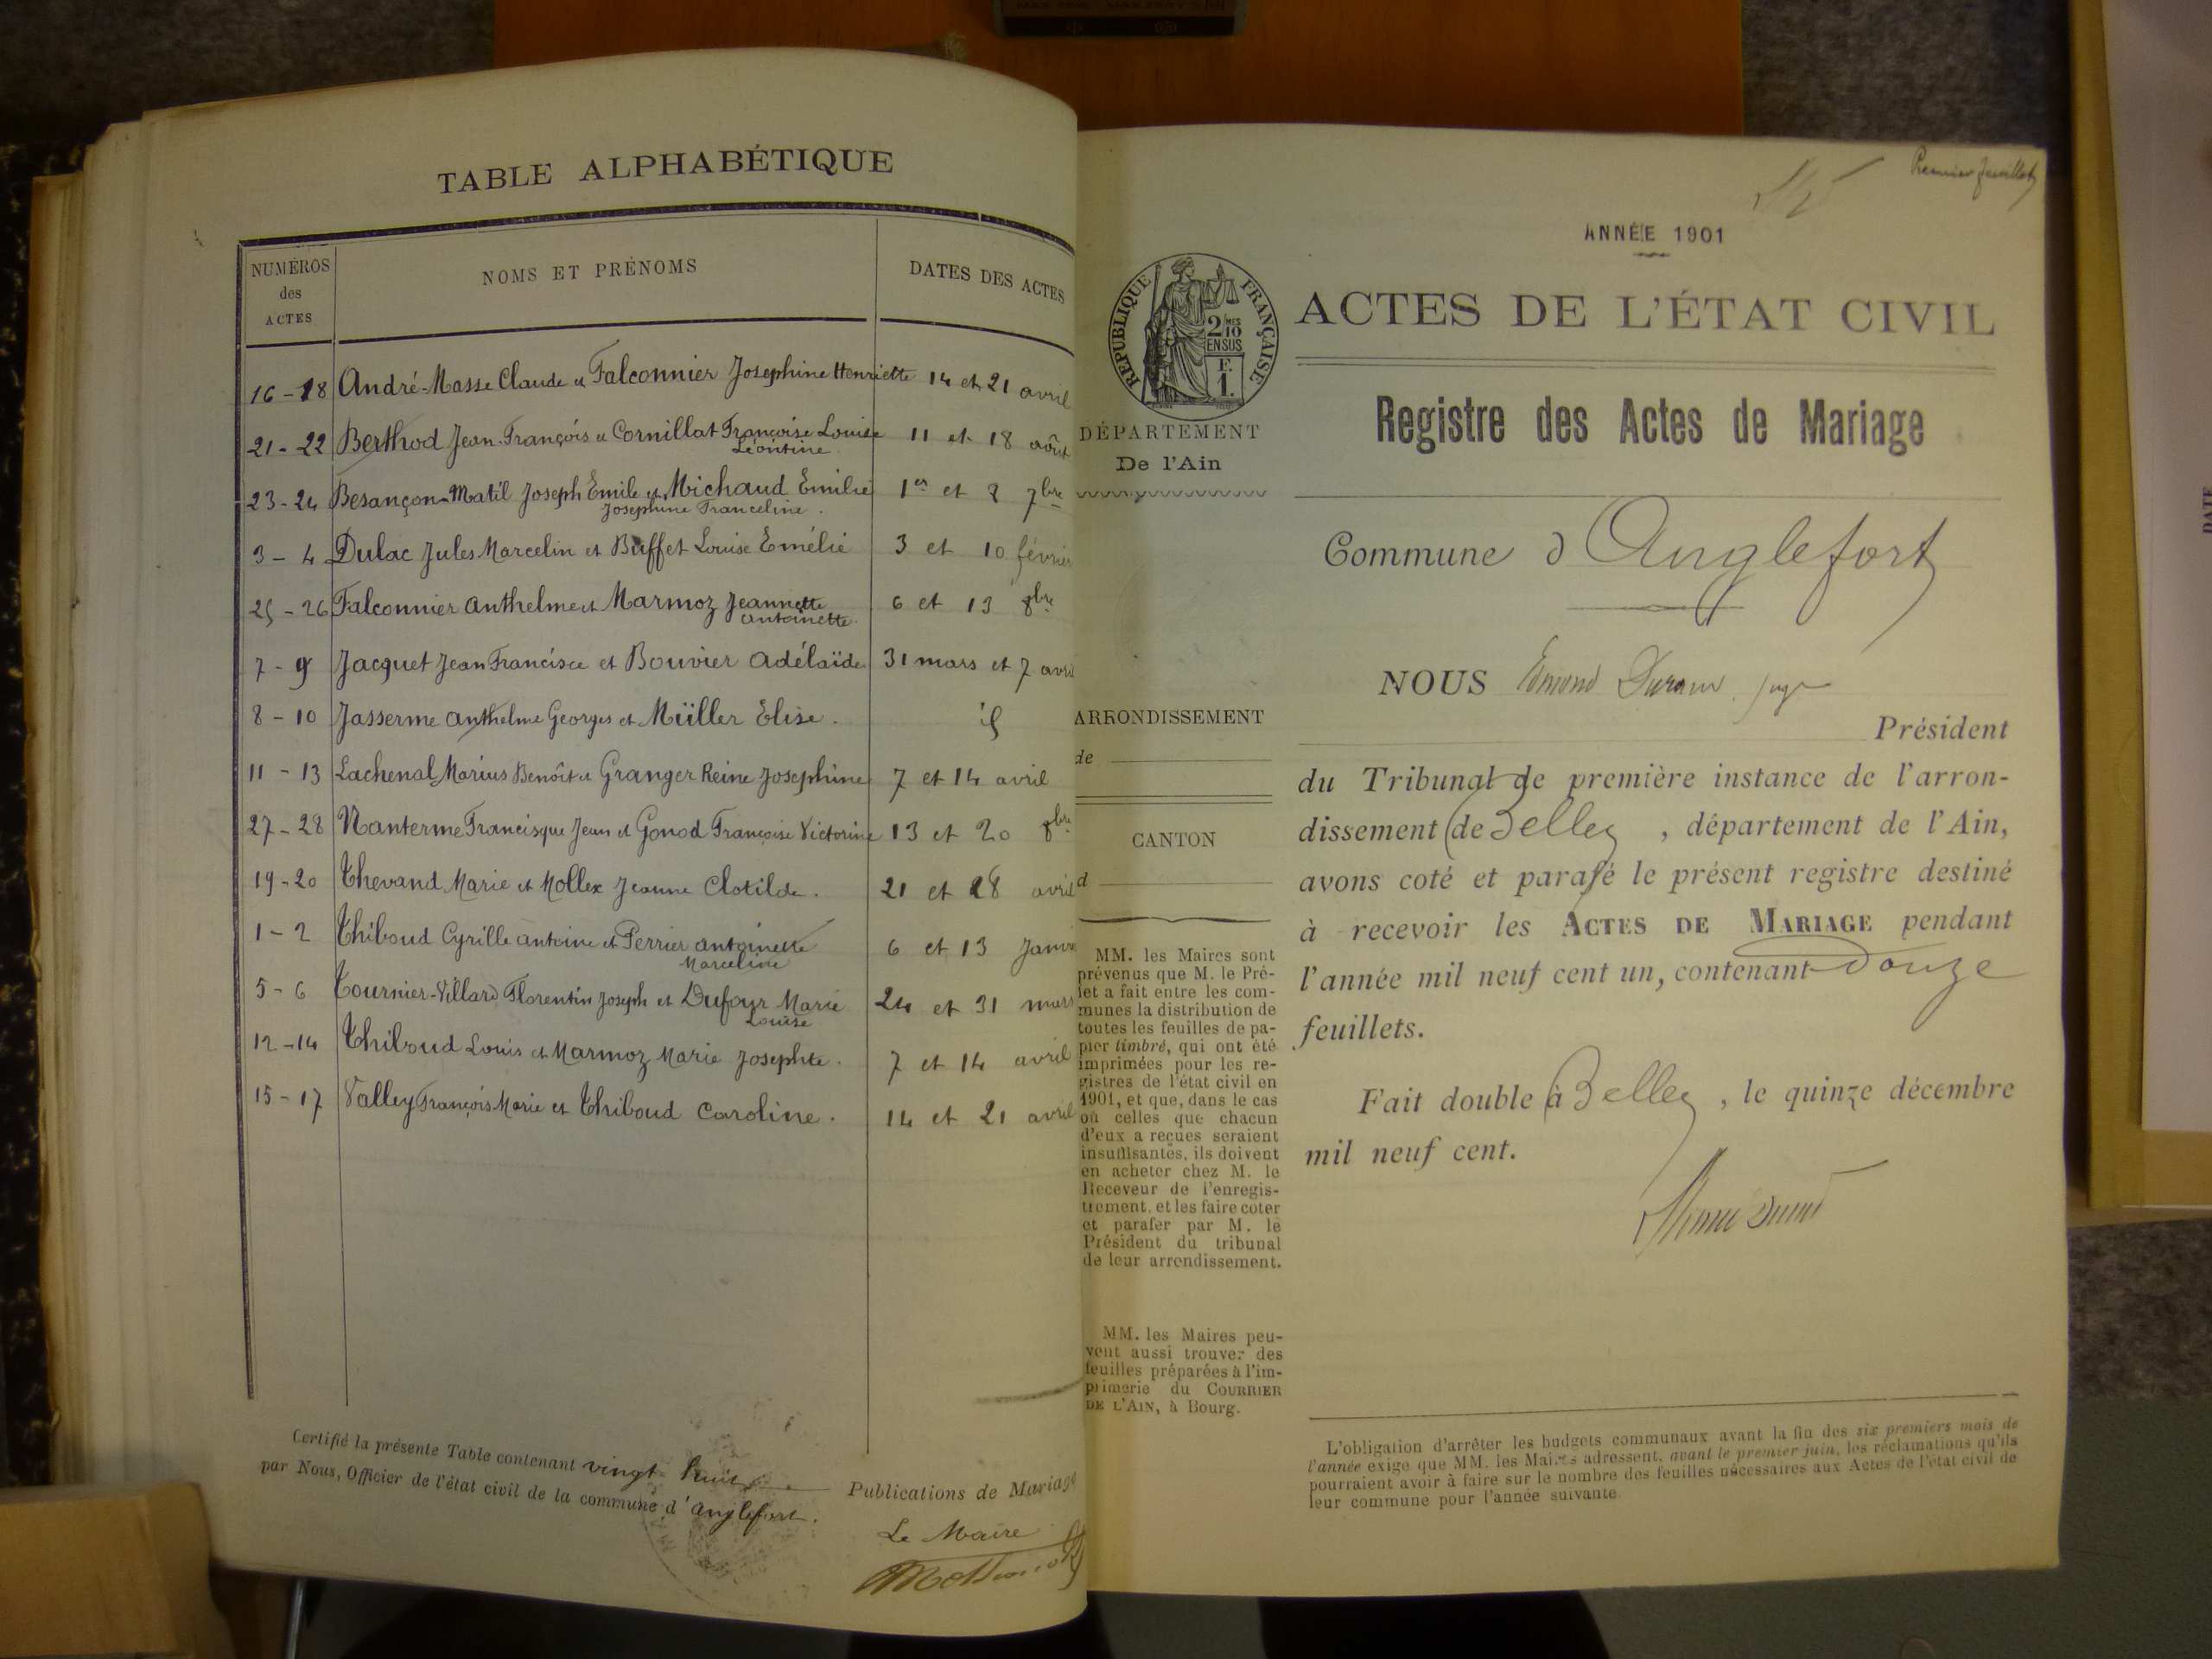 TABLE ALPHABÉTIQUE
NUMÉROS des ACTES
NOMS ET PRÉNOMS
DATES DES ACTES
16 - 18 André-Masse Claude et Falconnier Josephine Henriette 14 et 21 avril
21 - 22 Berthod Jean-François et Cornillat Françoise Louise 11 et 18 août
Léontine
23 - 24 Besançon-Matil Joseph Emile et Michaud Emilie 1er et 8 7bre
Josephine Franceline.
3 - 4 Dulac Jules Marcelin et Buffet Louise Emélie 3 et 10 février
25 - 26 Falconnier Anthelme et Marmoz Jeannette 6 et 13 8bre
Antoinette.
7 - 9 Jacquet Jean Francisce et Bouvier Adélaïde 31 mars et 7 avril
8 - 10 Jasserme Anthelme Georges et Müller Elise.
11 - 13 Lachenal Marius Benoît et Granger Reine Josephine 7 et 14 avril
27 - 28 Nanterme Francisque Jean et Gonod Françoise Victorine 13 et 20 8bre
19 - 20 Thevand Marie et Mollex Jeanne Clotilde. 21 et 28 avril
1 - 2 Thiboud Cyrille Antoine et Perrier Antoinette 6 et 13 Janvi
Marceline
5 - 6 Tournier-Villard Florentin Joseph et Dufour Marie 24 et 31 mars
Louise
12 - 14 Thiboud Louis et Marmoz Marie Josephte. 7 et 14 avril
15 - 17 Valley François Marie et Thiboud Caroline. 14 et 21 avril
Certifié la présente Table contenant vingt-huit Publications de Mariage
par Nous, Officier de l'état civil de la commune d'Anglefort.
Le Maire
Premier feuillet
ANNÉE 1901
RÉPUBLIQUE FRANÇAISE
2 MES
10
EN SUS
F.
1.
ACTES DE L'ÉTAT CIVIL
DÉPARTEMENT
De l'Ain
Registre des Actes de Mariage
Commune d'Anglefort
NOUS Edmond Durand, juge
Président
ARRONDISSEMENT
de
CANTON
d
du Tribunal de première instance de l'arron-
dissement de Belley, département de l'Ain,
avons coté et parafé le présent registre destiné
à recevoir les ACTES DE MARIAGE pendant
l'année mil neuf cent un, contenant douze
feuillets.
Fait double à Belley, le quinze décembre
mil neuf cent.
MM. les Maires sont
prévenus que M. le Pré-
fet a fait entre les com-
munes la distribution de
toutes les feuilles de pa-
pier timbré, qui ont été
imprimées pour les re-
gistres de l'état civil en
1901, et que, dans le cas
où celles que chacun
d'eux a reçues seraient
insuffisantes, ils doivent
en acheter chez M. le
Receveur de l'enregis-
trement, et les faire coter
et parafer par M. le
Président du tribunal
de leur arrondissement.
MM. les Maires peu-
vent aussi trouver des
feuilles préparées à l'im-
primerie du COURRIER
DE L'AIN, à Bourg.
L'obligation d'arrêter les budgets communaux avant la fin des six premiers mois de
l'année exige que MM. les Maires adressent, avant le premier juin, les réclamations qu'ils
pourraient avoir à faire sur le nombre des feuilles nécessaires aux Actes de l'état civil de
leur commune pour l'année suivante.
DATE